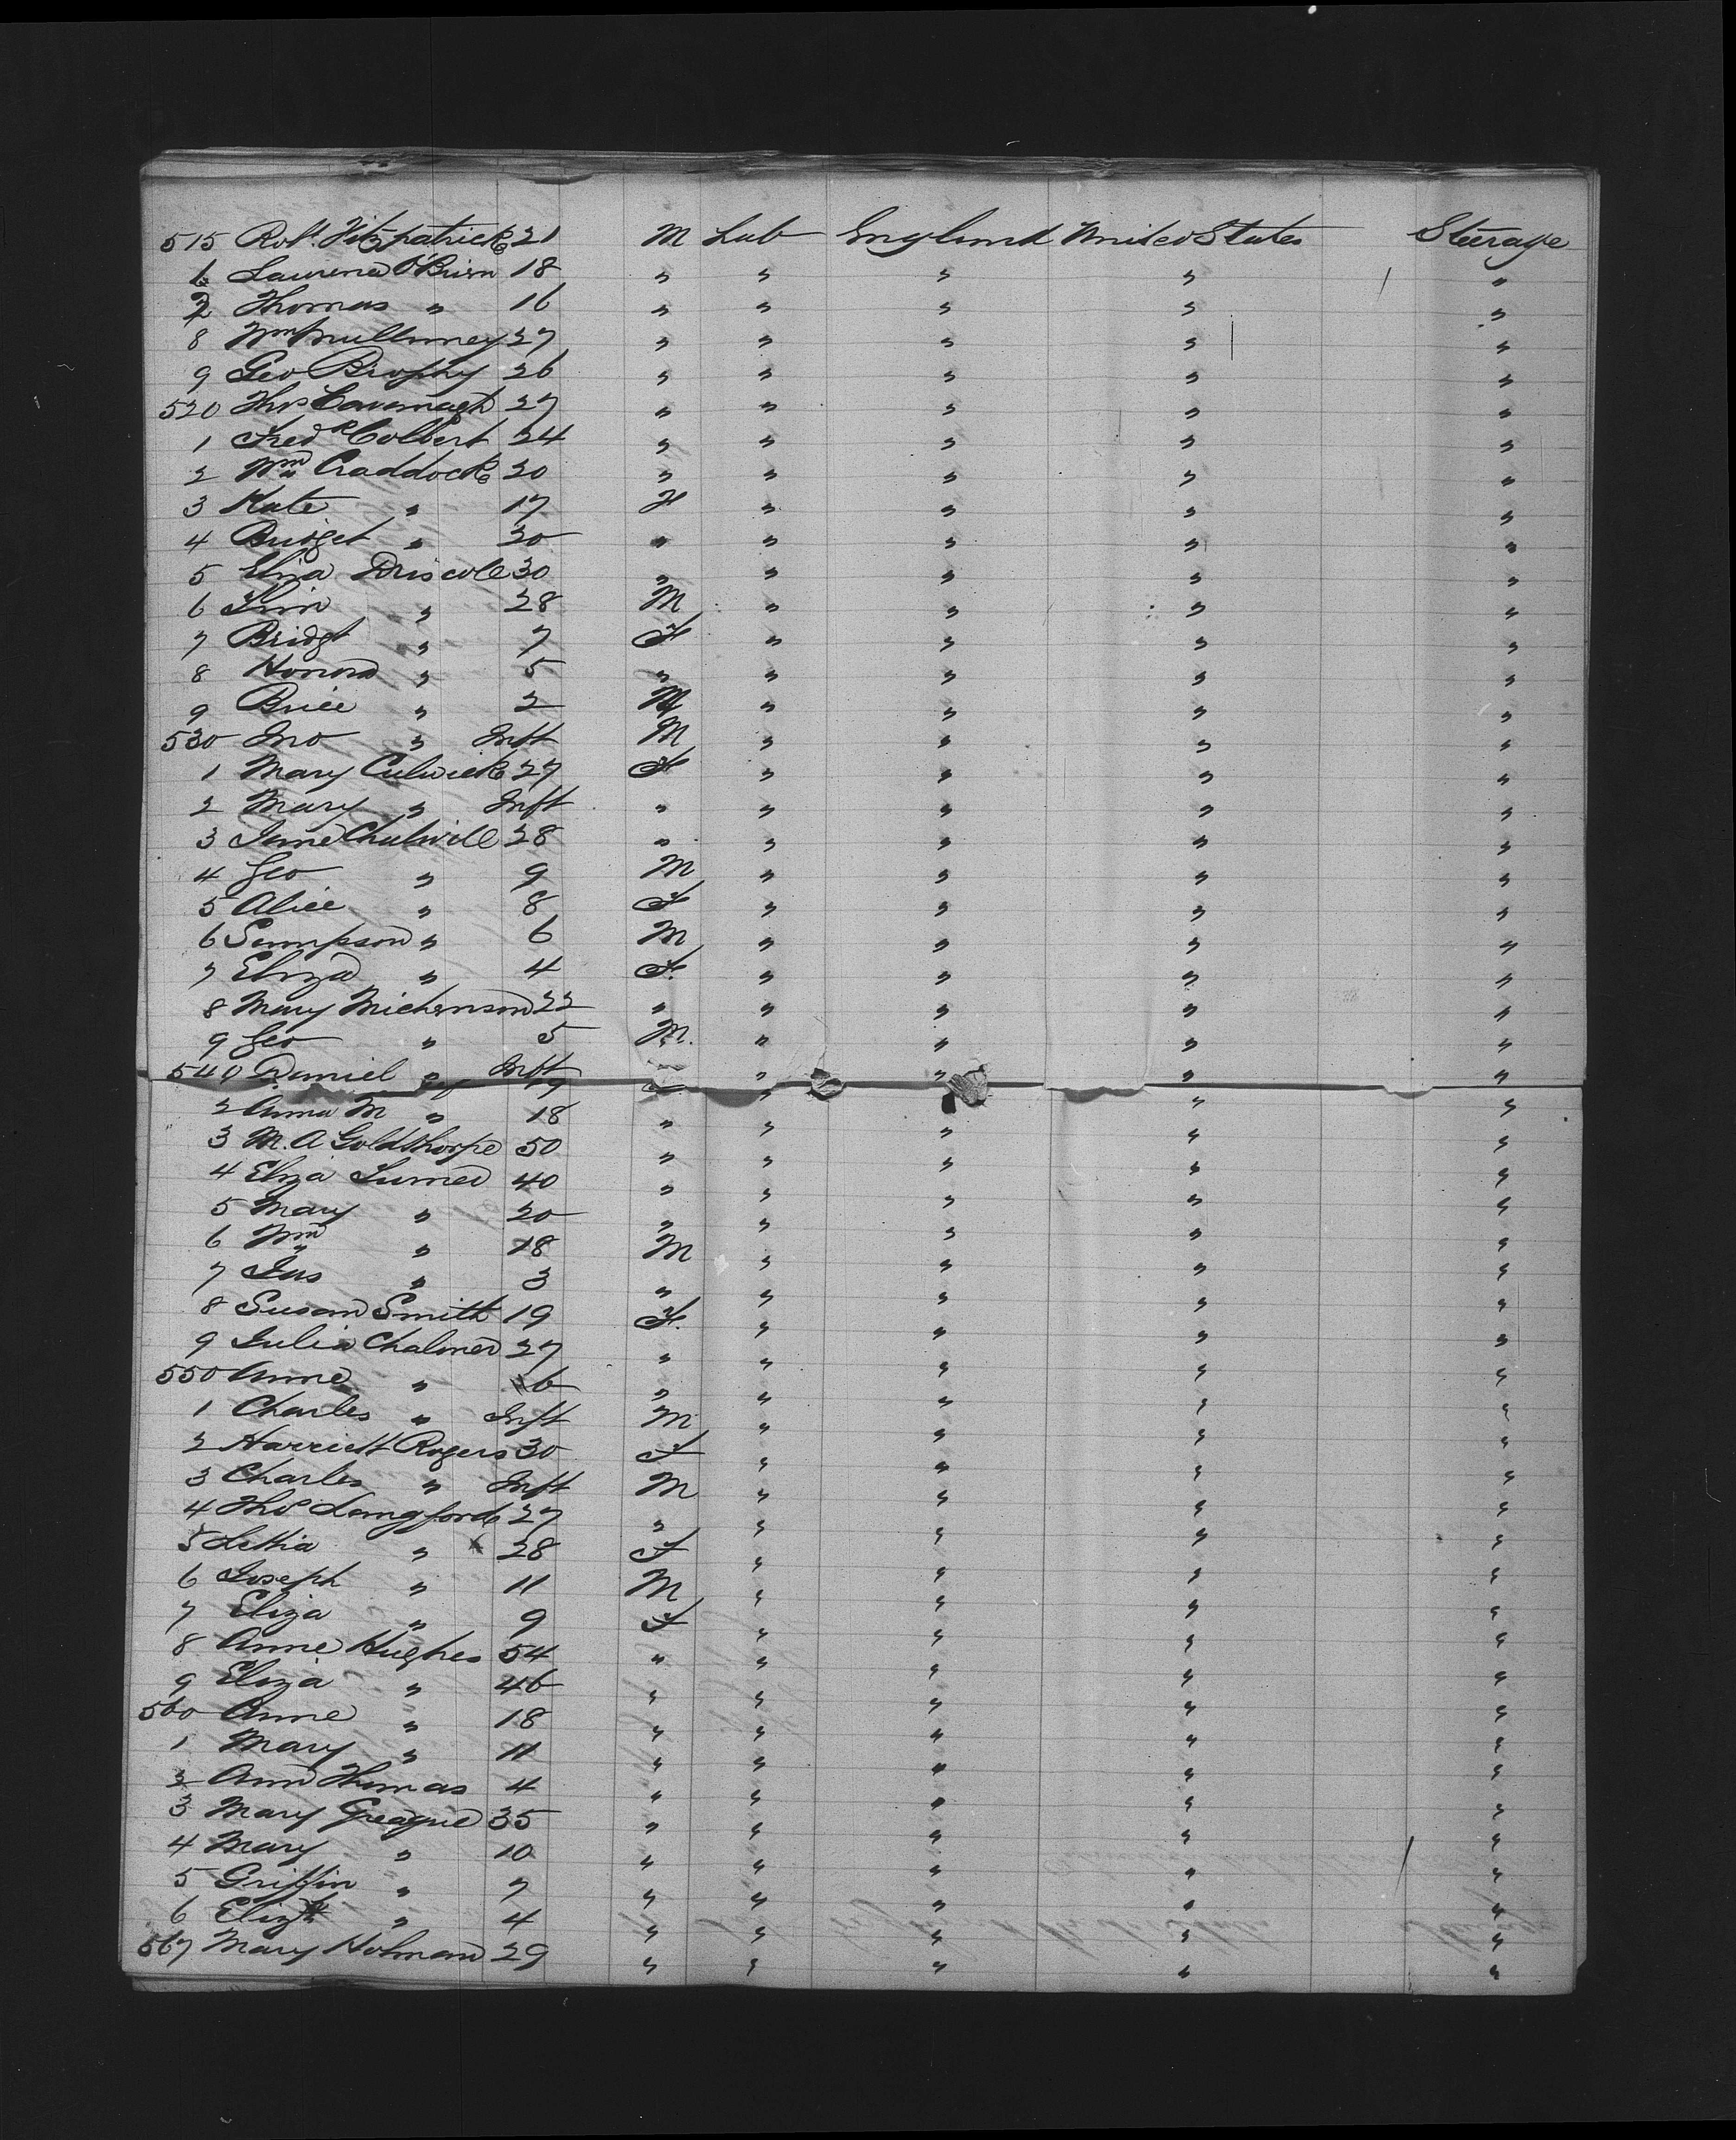 515 Robt. Fitzpatrick 21 M Lab England United States Steerage
6 Laurence O'Brien 18 " " " " "
7 Thomas " 16 " " " " "
8 Wm Mullinney 27 " " " " "
9 Geo Brophy 26 " " " " "
520 Thos Cavanagh 27 " " " " "
1 Fredk Colbert 24 " " " " "
2 Wm Craddock 20 " " " " "
3 Kate " 17 F " " " "
4 Bridget " 30 " " " " "
5 Eliza Driscole 30 " " " " "
6 " 28 M " " " "
7 Bridgt " 7 F " " " "
8 Honora " 5 " " " " "
9 Brice " 2 M " " " "
530 Jno " Inft M " " " "
1 Mary Culwick 27 F " " " "
2 Mary " Inft " " " " "
3 Jane 28 " " " " "
4 Geo " 9 M " " " "
5 Alice " 8 F " " " "
6 Sampson " 6 M " " " "
7 Eliza " 4 F " " " "
8 Mary Michenson 22 " " " " "
9 Geo " 5 M. " " " "
540 Daniel " Inft " " " "
2 Anna M " 18 " " " " "
3 M. A Goldthorpe 50 " " " " "
4 Eliza Turner 40 " " " " "
5 Mary " 20 " " " " "
6 Wm " 18 M " " " "
7 Jas " 3 " " " " "
8 Susan Smith 19 F. " " " "
9 Julia Chalmer 27 " " " " "
550 Anne " 6 " " " " "
1 Charles " Inft M " " " "
2 Harriett Rogers 30 F " " " "
3 Charles " Inft M " " " "
4 Thos Langford 27 " " " " "
5 Lettia " 28 F " " " "
6 Joseph " 11 M " " " "
7 Eliza " 9 F " " " "
8 Anne Hughes 54 " " " " "
9 Eliza " 46 " " " " "
560 Anne " 18 " " " " "
1 Mary " 11 " " " " "
2 Ann Thomas 4 " " " " "
3 Mary Greague 35 " " " " "
4 Mary " 10 " " " " "
5 Griffin " 7 " " " " "
6 Elizth " 4 " " " " "
567 Mary Holman 29 " " " " "